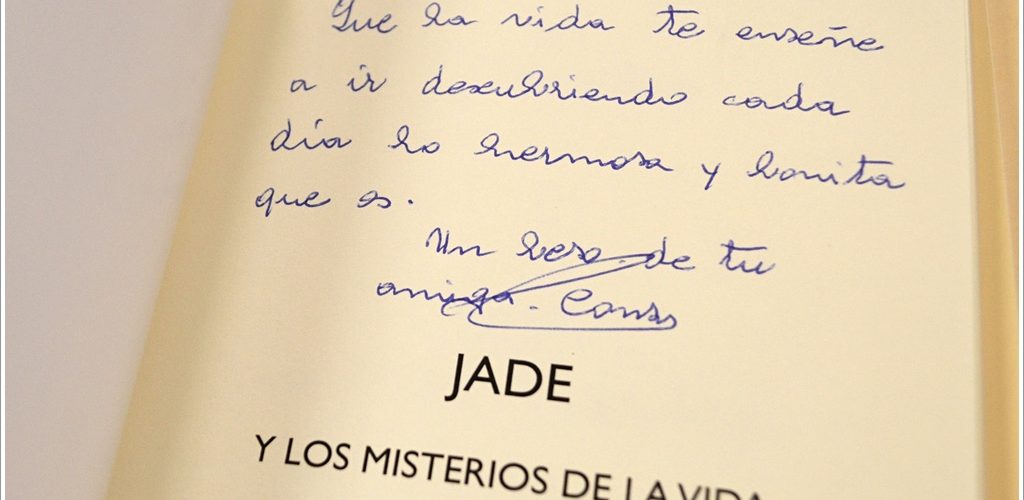 Que la vida te enseñe
a ir descubriendo cada
día lo hermosa y bonita
que es.
Un beso de tu
amiga. Cons
JADE
Y LOS MISTERIOS DE LA VIDA